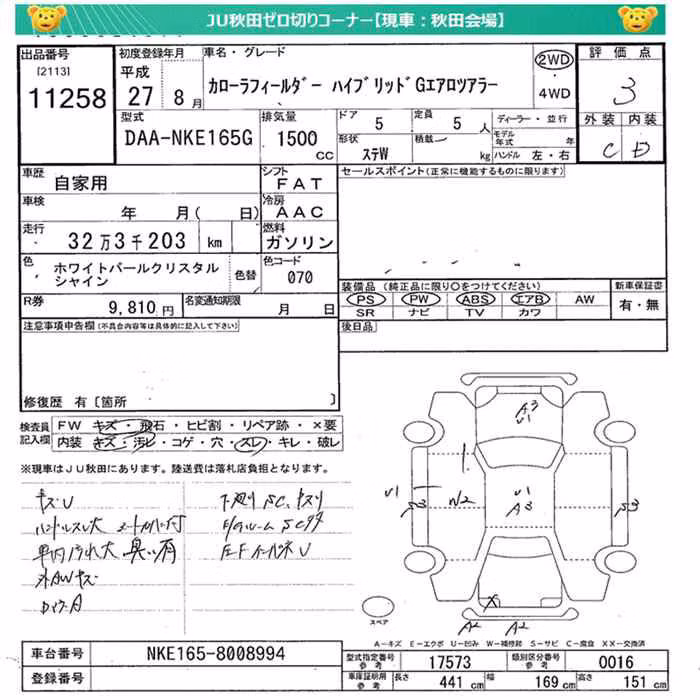 JU秋田ゼロ切りコーナー【現車：秋田会場】
出品番号 [2113] 11258
初度登録年月 平成 27 8月
車名・グレード カローラフィールダー ハイブリッドGエアロツアラー
2WD ・ 4WD
評価点 3
外装 内装 C D
型式 DAA-NKE165G
排気量 1500 CC
ドア 5
定員 5 人
形状 ステW
積載 kg
ディーラー・並行
モデル年式 年
ハンドル 左・右
車歴 自家用
シフト FAT
車検 年 月( 日)
冷房 AAC
走行 32万3千203 km
燃料 ガソリン
色 ホワイトパールクリスタルシャイン
色替
色コード 070
R券 9,810 円
名変通知期限 月 日
セールスポイント(正常に機能するものに限ります)
装備品 (純正品に限り○をつけてください)
PS PW ABS エアB AW
SR ナビ TV カワ
新車保証書 有・無
後日品
注意事項申告欄(不具合内容等は具体的に記入して下さい)
修復歴 有 [箇所 ]
検査員記入欄
FW キズ・飛石・ヒビ割・リペア跡・×要
内装 キズ・汚レ・コゲ・穴・スレ・キレ・破レ
※現車はJU秋田にあります。陸送費は落札店負担となります。
キズU
ハンドルスレ大
車内汚れ大 臭い有
外AWキズ
下廻りSC、サビ
A3
U1
U1
A3
U1
A2 A2
X
スペア
A－キズ E－エクボ U－凹み W－補修跡 S－サビ C－腐食 XX－交換済
車台番号 NKE165-8008994
登録番号
型式指定番号 参考 17573
類別区分番号 参考 0016
車庫証明用 参考 長さ 441 cm 幅 169 cm 高さ 151 cm